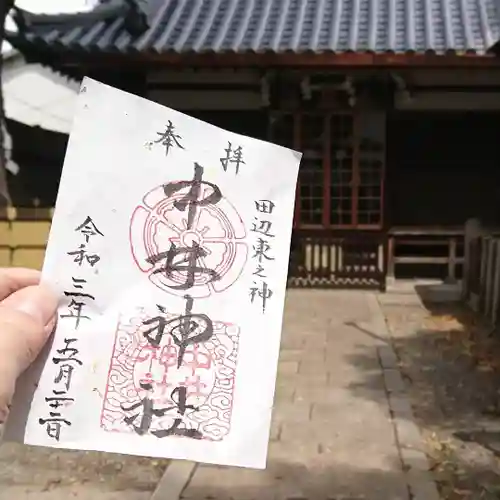 奉拝
田辺東之神
中井神社
中井神社
令和三年五月二十一日